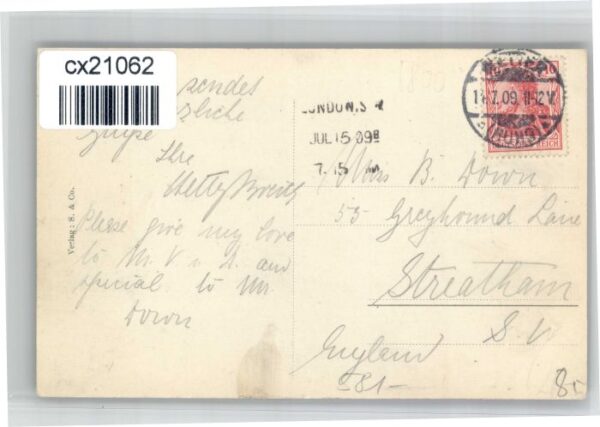 cx21062
sendet
zliche
Grüße
Ihre
Please give my love
to M. V u. A. and
special to Mr.
Down
Verlag: S. & Co.
LONDON.S
JUL 15 09
7. 15
7.09. 11-12V.
10
REICH
B. Down
55 Greyhound Lane
Streatham
S. W
England